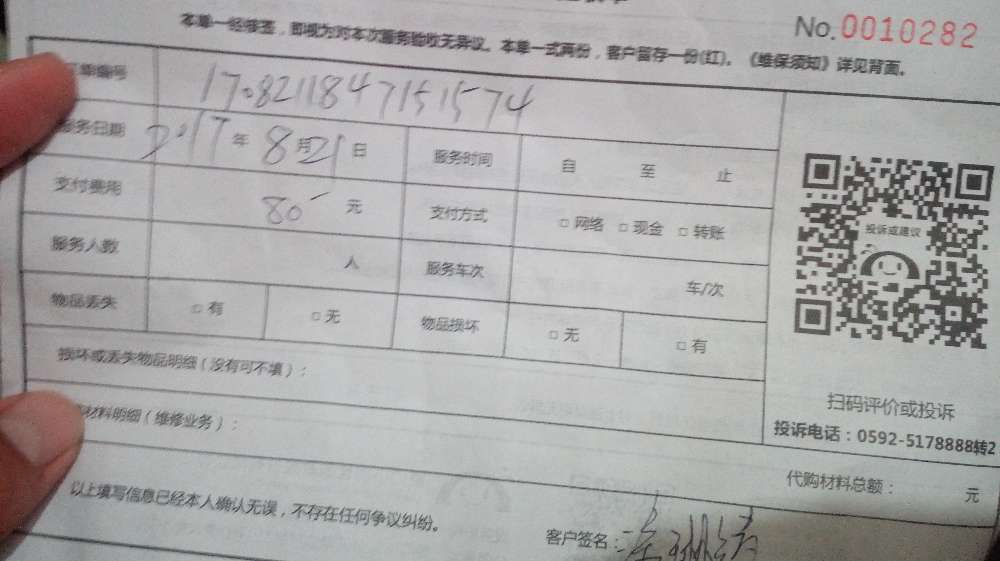 No.0010282
本单一经移签，即视为对本次服务验收无异议。本单一式两份，客户留存一份(红)。《维保须知》详见背面。
单编号 1708211847151574
服务日期 2017年8月21日 服务时间 自 至 止
支付费用 80 元 支付方式 □网络 □现金 □转账
服务人数 人 服务车次 车/次
物品丢失 □有 □无 物品损坏 □无 □有
投诉或建议
损坏或丢失物品明细（没有可不填）：
扫码评价或投诉
材料明细（维修业务）：
投诉电话：0592-5178888转2
代购材料总额： 元
以上填写信息已经本人确认无误，不存在任何争议纠纷。
客户签名：